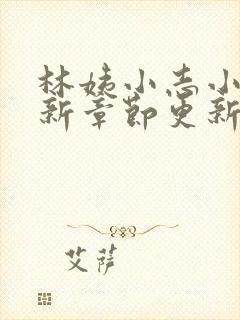 林姨小志小
新章节更新
艾萨